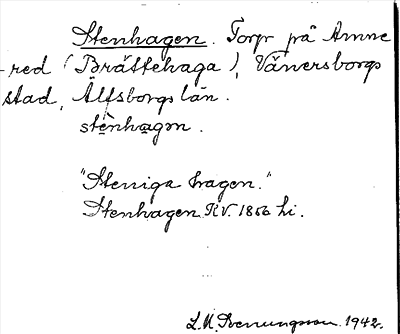 Stenhagen. Torp på Amne
-red (Brättehaga), Vänersborgs
stad, Älfsborgs län.
stènhagən.
"Steniga hagen."
Stenhagen KV. 1856 hi.
L.M. Svenungsson 1942.